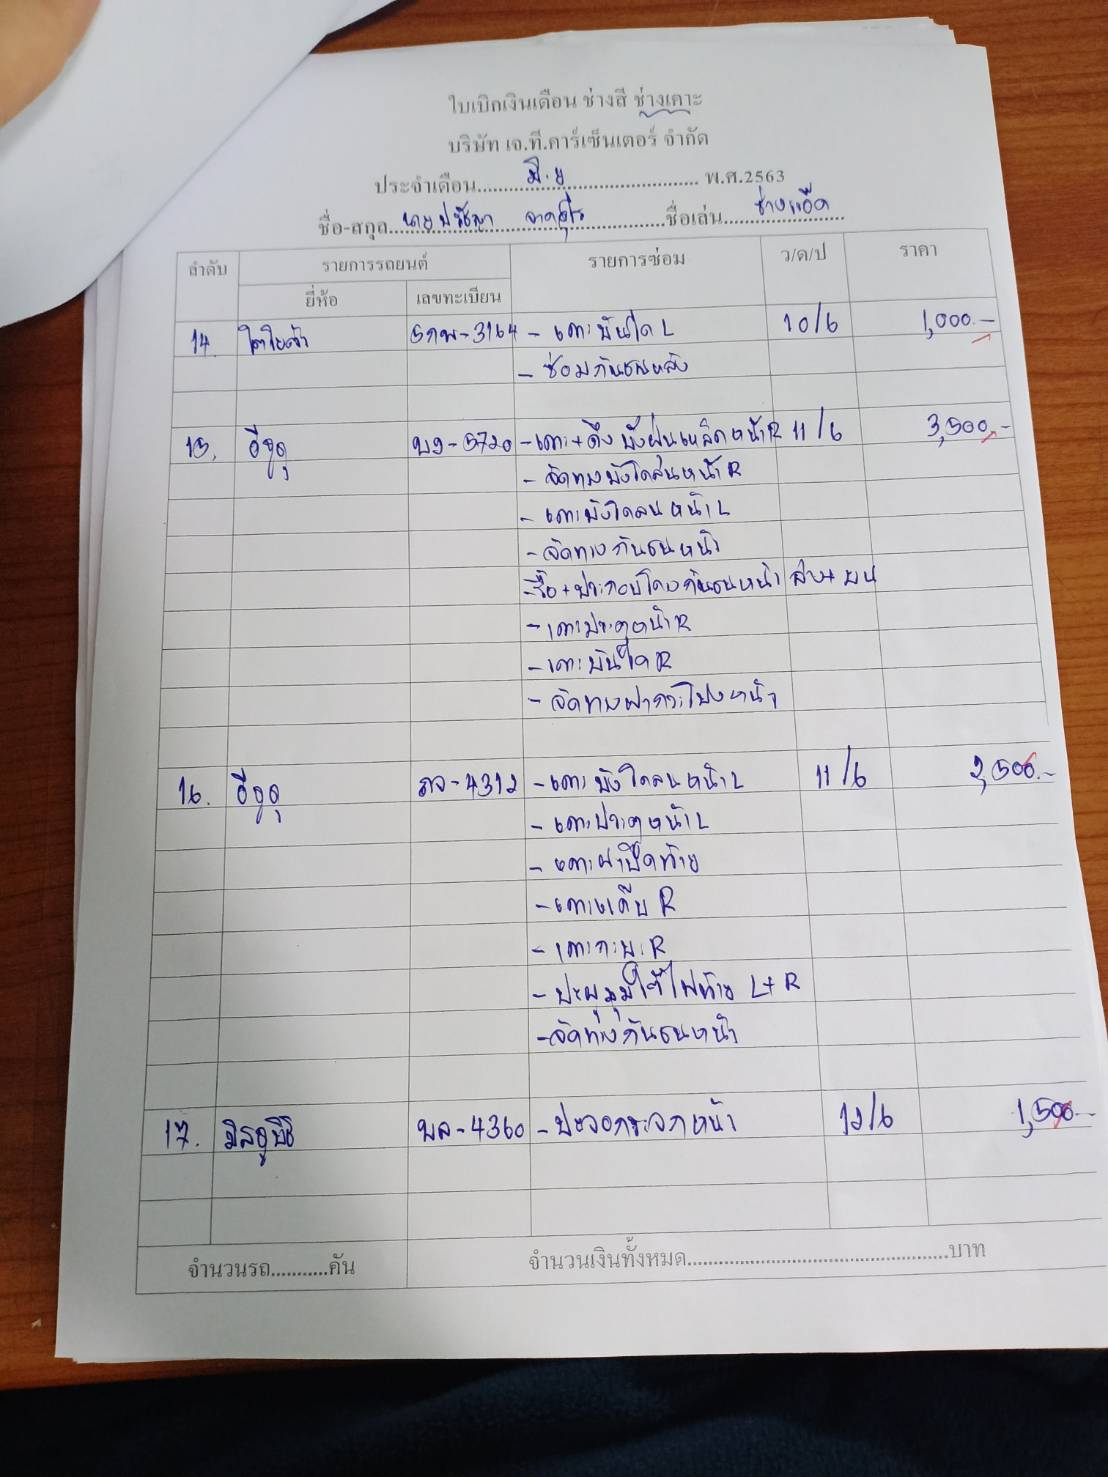 ใบเบิกเงินเดือน ช่างสี ช่างเคาะ
บริษัท เจ.ที.คาร์เซ็นเตอร์ จำกัด
ประจำเดือน มิ.ย พ.ศ.2563
ชื่อ-สกุล นาย ชื่อเล่น ช่างแอ๊ด
ลำดับ รายการรถยนต์ รายการซ่อม ว/ด/ป ราคา
ยี่ห้อ เลขทะเบียน
14 โตโยต้า 5กพ-3164 - เคาะบันได L 10/6 1,000.-
- ซ่อมกันชนหลัง
15. อีซูซุ บว-5720 - เคาะ+ดึง บังฝุ่นเหล็กหน้า R 11/6 3,500.-
- จัดทางบังโคลนหน้า R
- เคาะบังโคลนหน้า L
- จัดทางกันชนหน้า
- รื้อ+ประกอบโครงกันชนหน้า ล่าง+บน
- เคาะประตูหน้า R
- เคาะบันได R
- จัดทางฝากระโปรงหน้า
16. อีซูซุ -4312 - เคาะบังโคลนหน้า L 11/6 2,500.-
- เคาะประตูหน้า L
- เคาะฝาปิดท้าย
- เคาะแค็บ R
- เคาะกะบะ R
- ไฟท้าย L+R
- จัดทางกันชนหน้า
17. มิตซูบิชิ บล-4360 - ปะจอกระจกหน้า 12/6 1,500.-
จำนวนรถ...........คัน จำนวนเงินทั้งหมด..............................................บาท